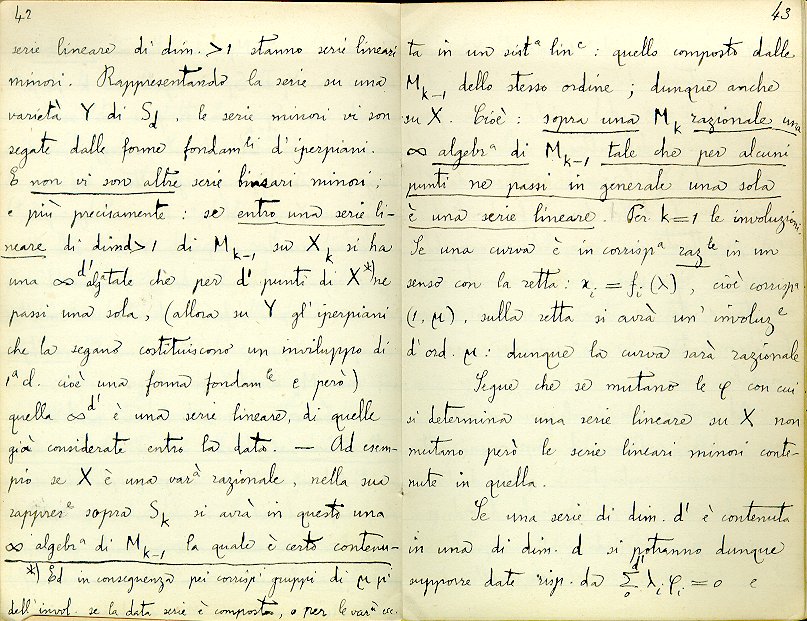 42
serie lineare di dim. > 1 stanno serie lineari
minori. Rappresentando la serie su una
varietà Y di S_d, le serie minori vi son
segate dalle forme fondam^li d'iperpiani.
E non vi son altre serie lineari minori;
e più precisamente: se entro una serie li-
neare di dim d>1 di M_{k-1} su X_k si ha
una ∞^{d'} alg^a tale che per d' punti di X *) ne
passi una sola, (allora su Y gl'iperpiani
che la segano costituiscono un inviluppo di
1^a cl. cioè una forma fondam^le e però)
quella ∞^{d'} è una serie lineare, di quelle
già considerate entro la data. — Ad esem-
pio se X è una var^à razionale, nella sua
rappres^e sopra S_k si avrà in questo una
∞ algebr^a di M_{k-1} la quale è certo contenu-
*) Ed in conseguenza pei corrisp^i gruppi di μ p^i
dell'invol. se la data serie è composta, o per le var^à ecc.
43
ta in un sist^a lin^e: quello composto dalle
M_{k-1} dello stesso ordine; dunque anche
su X. Cioè: sopra una M_k razionale una
∞ algebr^a di M_{k-1} tale che per alcuni
punti ne passi in generale una sola
è una serie lineare. Per k=1 le involuzioni.
Se una curva è in corrisp^a raz^le in un
senso con la retta: x_i = f_i(λ), cioè corrisp^a
(1, μ), sulla retta si avrà un'involuz^e
d'ord. μ: dunque la curva sarà razionale
Segue che se mutano le φ con cui
si determina una serie lineare su X non
mutano però le serie lineari minori conte-
nute in quella.
Se una serie di dim. d' è contenuta
in una di dim. d si potranno dunque
supporre date risp. da Σ_0^{d'} λ_i φ_i = 0 e